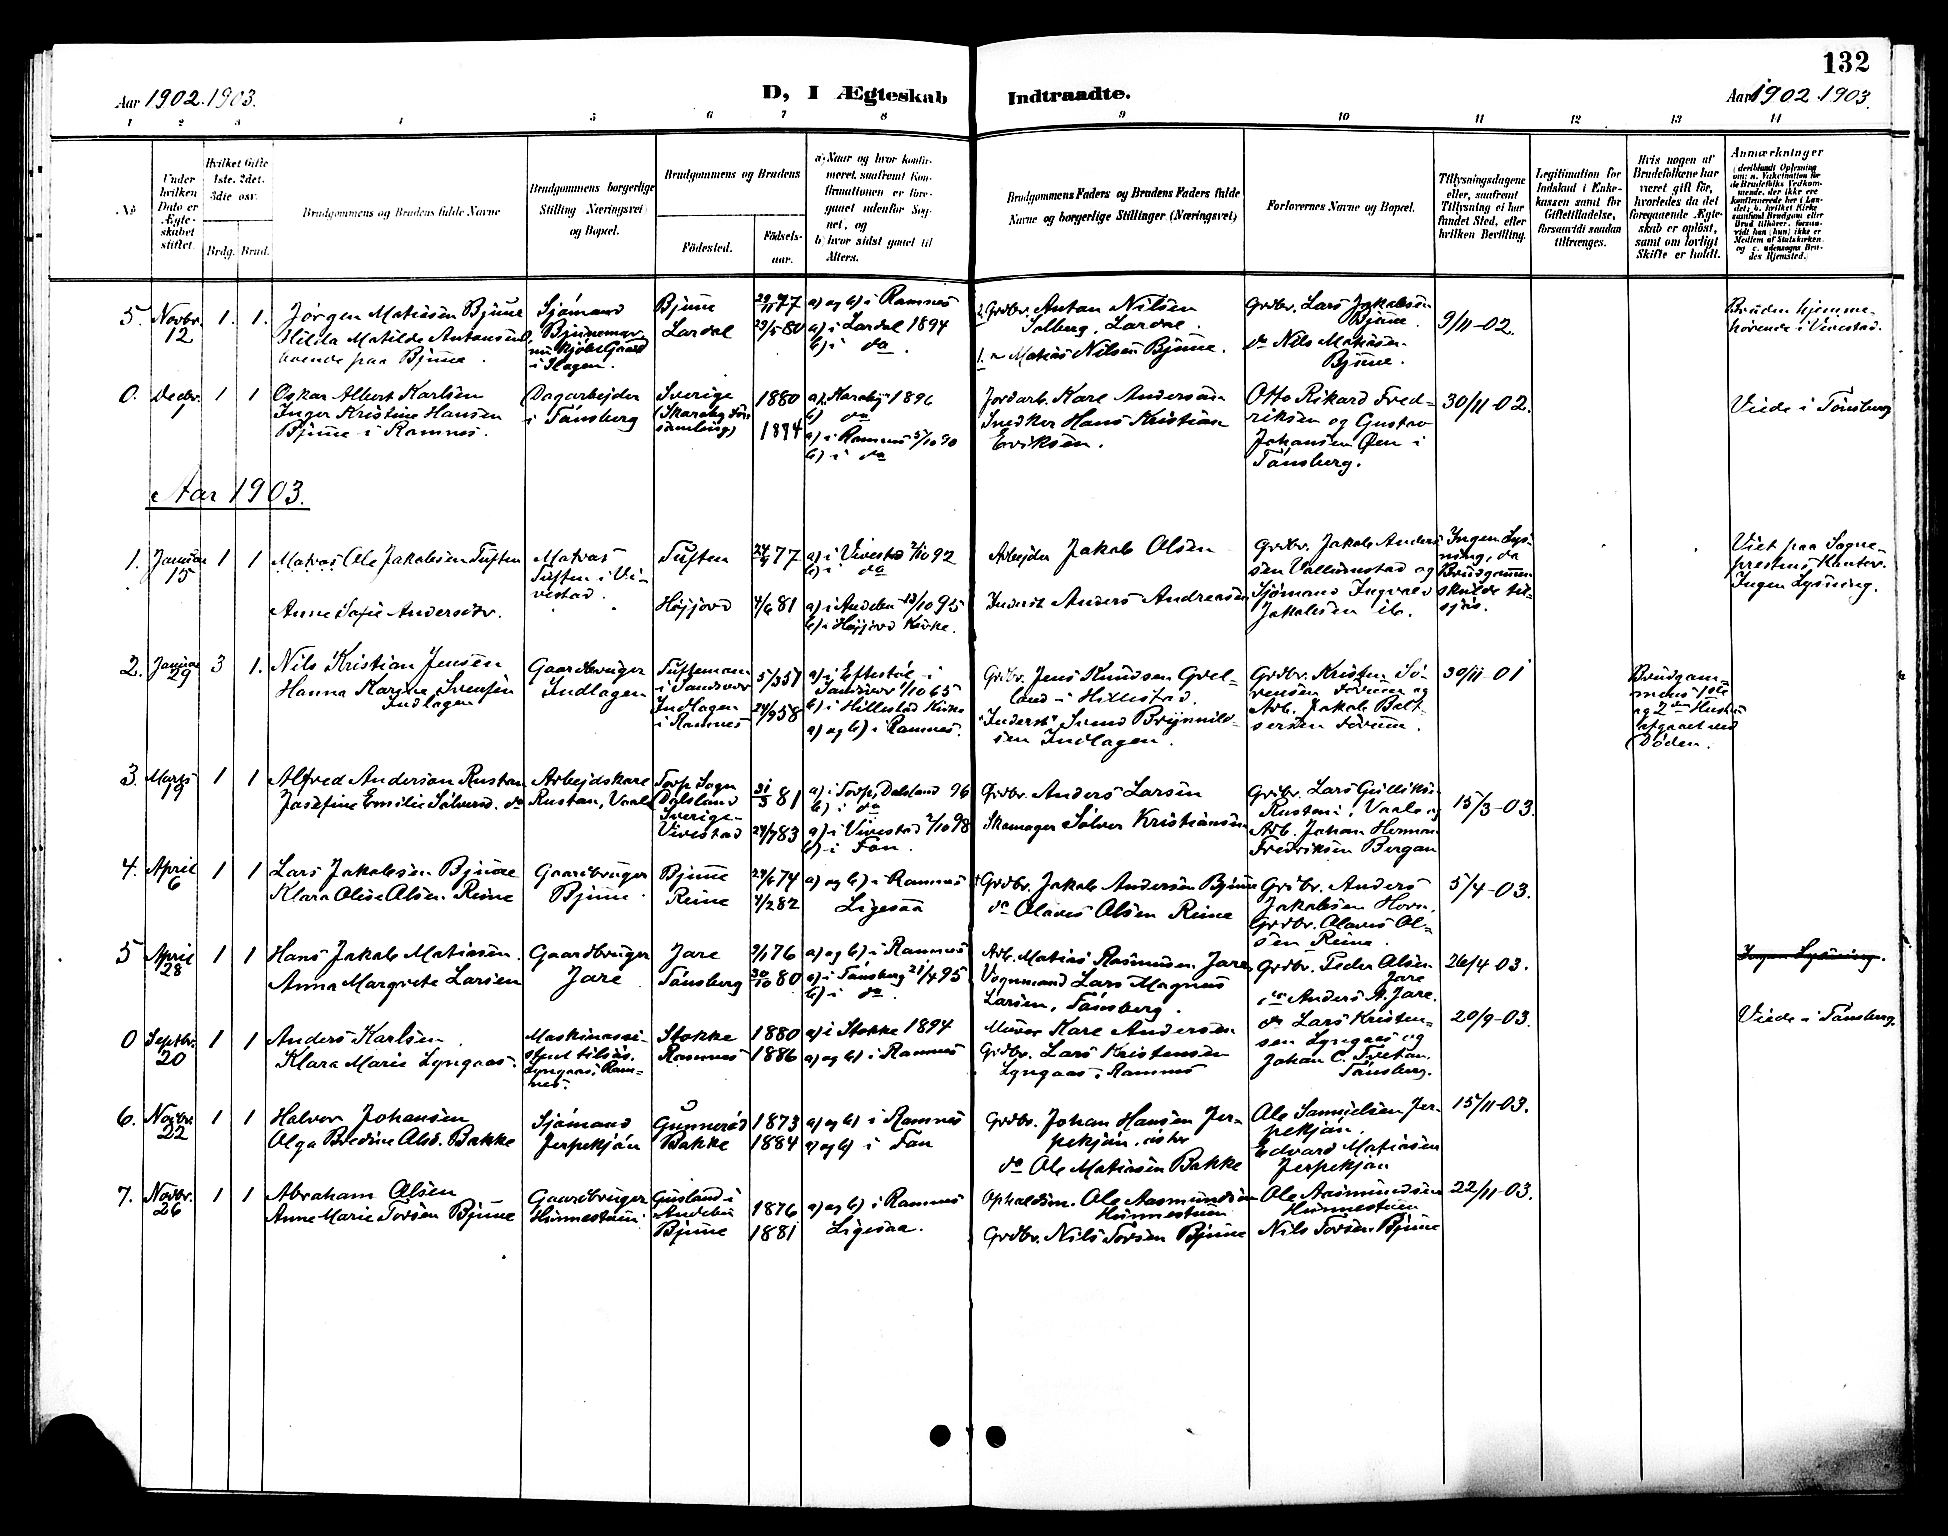 132
Aar 1902.1903.
D, I Ægteskab Indtraadte.
Aar 1902.1903.
1 2 3 4 5 6 7 8 9 10 11 12 13 14
No
Under hvilken Dato er Ægteskabet stiftet.
Hvilket Gifte 1ste. 2det. 3dte osv.
Brdg. Brud.
Brudgommens og Brudens fulde Navne
Brudgommens borgerlige Stilling Næringsvei og Bopæl.
Brudgommens og Brudens
Fødested.
Fødsels-aar.
a) Naar og hvor konfirmeret, saafremt Konfirmationen er foregaaet udenfor Sognet, og
b) hvor sidst gaaet til Alters.
Brudgommens Faders og Brudens Faders fulde Navne og borgerlige Stillinger (Næringsvei)
Forlovernes Navne og Bopæl.
Tillysningsdagene eller, saafremt Tillysning ei har fundet Sted, efter hvilken Bevilling.
Legitimation for Indskud i Enkekassen samt for Giftetilladelse, forsaavidt saadan tiltrænges.
Hvis nogen af Brudefolkene har været gift før, hvorledes da det foregaaende Ægteskab er opløst, samt om lovligt Skifte er holdt.
Anmærkninger
5. Novbr. 12 1. 1.
Jørgen Matiasen Bjune
Hilda Matilde Antonsen
boende paa Bjune.
Sjømand
i Slagen.
Bjune
Lardal
29/11 77
23/5 80
a) og b) i Ramnes
a) i Lardal 1894
b) i do.
2. Grdbr. Anton Nilsen
Solberg, Lardal.
1. " Matias Nilsen Bjune.
Grdbr. Lars Jakobsen
Bjune.
do Nils Matiasen
Bjune.
9/11-02.
Bruden hjemme-
hørende i Vivestad.
0. Decbr. 1 1 1
Oskar Albert Karlsen
Inger Kristine Hansen
Bjune i Ramnes.
Dagarbejder
i Tønsberg
Sverige
(Skaraby For-
samling)
1880
1874
a) Karaby 1896
b) do
a) i Ramnes 5/10 90
b) i do
Jordarb. Kare Anderson
Snedker Hans Kristian
Eriksen.
Otto Rikard Fred-
riksen og Gustav
Johansen Øen i
Tønsberg.
30/11-02.
Viede i Tønsberg
Aar 1903.
1. Januar 15 1 1
Matias Ole Jakobsen Tuften
Anne Sofie Andersdtr.
Matias
Tuften i Vi-
vestad.
Tuften
Højjord
24/4 77
4/6 81
a) i Vivestad 2/10 92
b) i do
a) i Andebu 13/10 95
b) i Højjord Kirke.
Arbejder Jakob Olsen
Inderst Anders Andreasen
Grdbr. Jakob Ander-
sen Vallumstad og
Sjømand Ingvald
Jakobsen ib.
Ingen Lys-
ning, da
Brudgommen
skulde til-
sjøs.
Viet paa Sogne-
prestens Kontor.
Ingen Lysning.
2. Januar 29 3 1.
Nils Kristian Jensen
Hanna Karine Svensen
Indlagen
Gaardbruger
Indlagen
Tufteman
i Sandsvær
Indlagen
i Ramnes
5/3 51
24/9 58
a) i Efteløt i
Sandsvær 1/10 65
b) i Hillestad Kirke
a) og b) i Ramnes.
Grdbr. Jens Knudsen Grel-
land i Hillestad.
"Inderst" Svend Brynnild-
sen Indlagen.
Grdbr. Kristen Sø-
rensen Forum og
Arb. Jakob Belt-
sersen Forum.
30/11-01
Brudgom-
mens 1ste
og 2den Hustru
afgaaet ved
Døden.
3. Marts 19 1 1
Alfred Anderson Rustan
Josefine Emilie Sølverd. do
Arbejdskare
Rustan, Vaale
Torp Sogn
Dalsland
Sverige-
Vivestad
31/3 81
24/7 83
a) i Torp, Dalsland 96
b) i do
a) i Vivestad 2/10 98
b) i Fon.
Grdbr. Anders Larsen
Skomager Sølver Kristiansen
Grdbr. Lars Gulliks.
Rustan i Vaale og
Arb. Johan Herman
Fredriksen Bergan
15/3-03.
4. April 6 1 1
Lars Jakobsen Bjune
Klara Olise Olsen Reine
Gaardbruger
Bjune.
Bjune
Reine
29/6 74
4/2 82
a) og b) i Ramnes
Ligesaa
Grdbr. Jakob Andersen Bjune
do Olaves Olsen Reine
Grdbr. Anders
Jakobsen Horn.
Grdbr. Olaves Ol-
sen Reine.
5/4-03.
5 April 28 1 1
Hans Jakob Matiasen.
Anna Margrete Larsen
Gaardbruger
Jare
Jare
Tønsberg
9/1 76
30/10 80
a) og b) i Ramnes
a) i Tønsberg 21/4 95
b) i do.
Arb. Matias Rasmusen Jare
Vognmand Lars Magnus
Larsen, Tønsberg.
Grdbr. Peder Olsen
Jare
do Anders A. Jare.
26/4-03.
Ingen Lysning.
0 Septbr. 20 1 1
Anders Karlsen
Klara Marie Lyngaas.
Maskinassi-
stent tilsjøs.
Lyngaas, Ram-
nes.
Stokke
Ramnes
1880
1886
a) i Stokke 1894
a) og b) i Ramnes
Murer Kare Andersen
Grdbr. Lars Kristensen
Lyngaas, Ramnes
do Lars Kristen-
sen Lyngaas og
Johan C. Tvetan,
Tønsberg.
20/9-03.
Viede i Tønsberg.
6. Novbr. 22 1 1
Halvor Johansen
Olga Bredine Olsd. Bakke
Sjømand
Jerpekjøn
Gunnerød
Bakke
1873
1884
a) og b) i Ramnes
a) og b) i Fon
Grdbr. Johan Hansen Jer-
pekjøn,
do Ole Matiasen Bakke
Ole Samuelsen Jer-
pekjøn,
Edvard Matiasen
Jerpekjøn
15/11-03.
7. Novbr. 26 1 1
Abraham Olsen
Anne Marie Torsen Bjune
Gaardbruger
Hunnestuen.
Gusland i
Andebu
Bjune
1876
1881
a) og b) i Ramnes
Ligesaa.
Opholdsm. Ole Aasmundsen
Hunnestuen
Grdbr. Nils Torsen Bjune
Ole Aasmundsen
Hunnestuen
Nils Torsen Bjune
22/11-03.